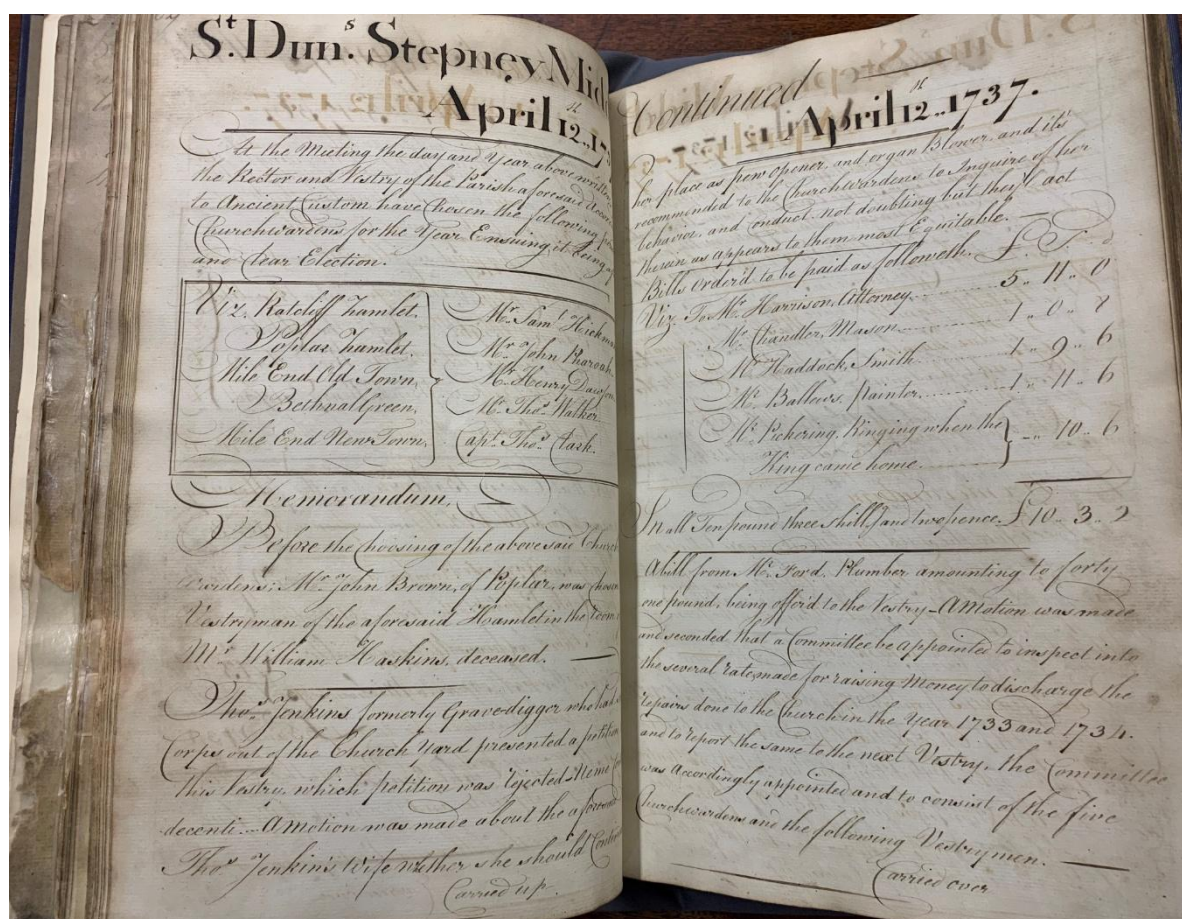 St. Dun.s Stepney Mid
April 12.th 17
At the Meeting the day and Year above writt
the Rector and Vestry of the Parish aforesaid
to Ancient Custom have Chosen the following
Churchwardens for the Year Ensuing it being
and Clear Election.
Viz. Ratcliff Hamlet,
Poplar Hamlet.
Mile End Old Town,
Bethnal Green,
Mile End New Town,
Mr. Sam.l Hickm
Mr. John
Mr. Henry Daw
Mr. Tho.s Walker
Cap.t Tho.s Clark.
Memorandum,
Before the Choosing of the above said Church
wardens; Mr. John Brown, of Poplar, was Chosen
Vestryman of the aforesaid Hamlet in the room
Mr. William Haskins, deceased.
Tho.s Jenkins formerly Gravedigger who
Corps out of the Church Yard presented a petition
this Vestry, which petition was rejected Neme
decenti.... A Motion was made about the aforesaid
Tho.s Jenkin's wife wether she should Continue
Carried up.
Continued
April 12.th 1737.
her place as pew opener, and organ Blower, and it's
recommended to the Churchwardens to Inquire of her
behavior, and conduct not doubting but they'l act
therein as appears to them most Equitable.
Bills Order'd to be paid as followeth. £. S. d
Viz. To Mr. Harrison, Attorney 5 .. 11 .. 0
Mr. Chandler, Mason 1 .. 0 .. 8
Mr. Haddock, Smith 1 .. 9 .. 6
Mr. Ballows, Painter 1 .. 11 .. 6
Mr. Pickering, Ringing when the
King came home } - .. 10 .. 6
In all Ten pound three shill.s and two pence. £ 10 .. 3 .. 2
A bill from Mr. Ford, Plumber amounting to forty
one pound, being offord to the Vestry - A Motion was made
and seconded that a Committee be appointed to inspect into
the several rates made for raising Money to discharge the
repairs done to the Church in the Year 1733 and 1734.
and to report the same to the next Vestry, the Committee
was accordingly appointed and to consist of the five
Churchwardens and the following Vestrymen.
Carried over